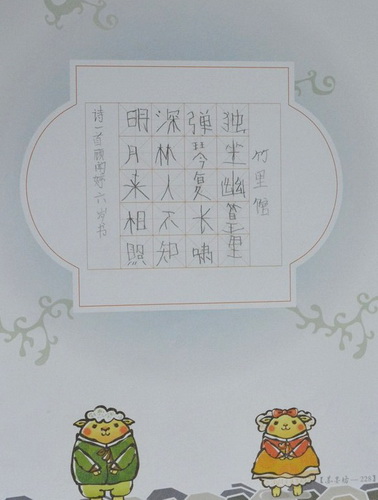 竹里馆
独坐幽篁里
弹琴复长啸
深林人不知
明月来相照
诗一首 六岁书